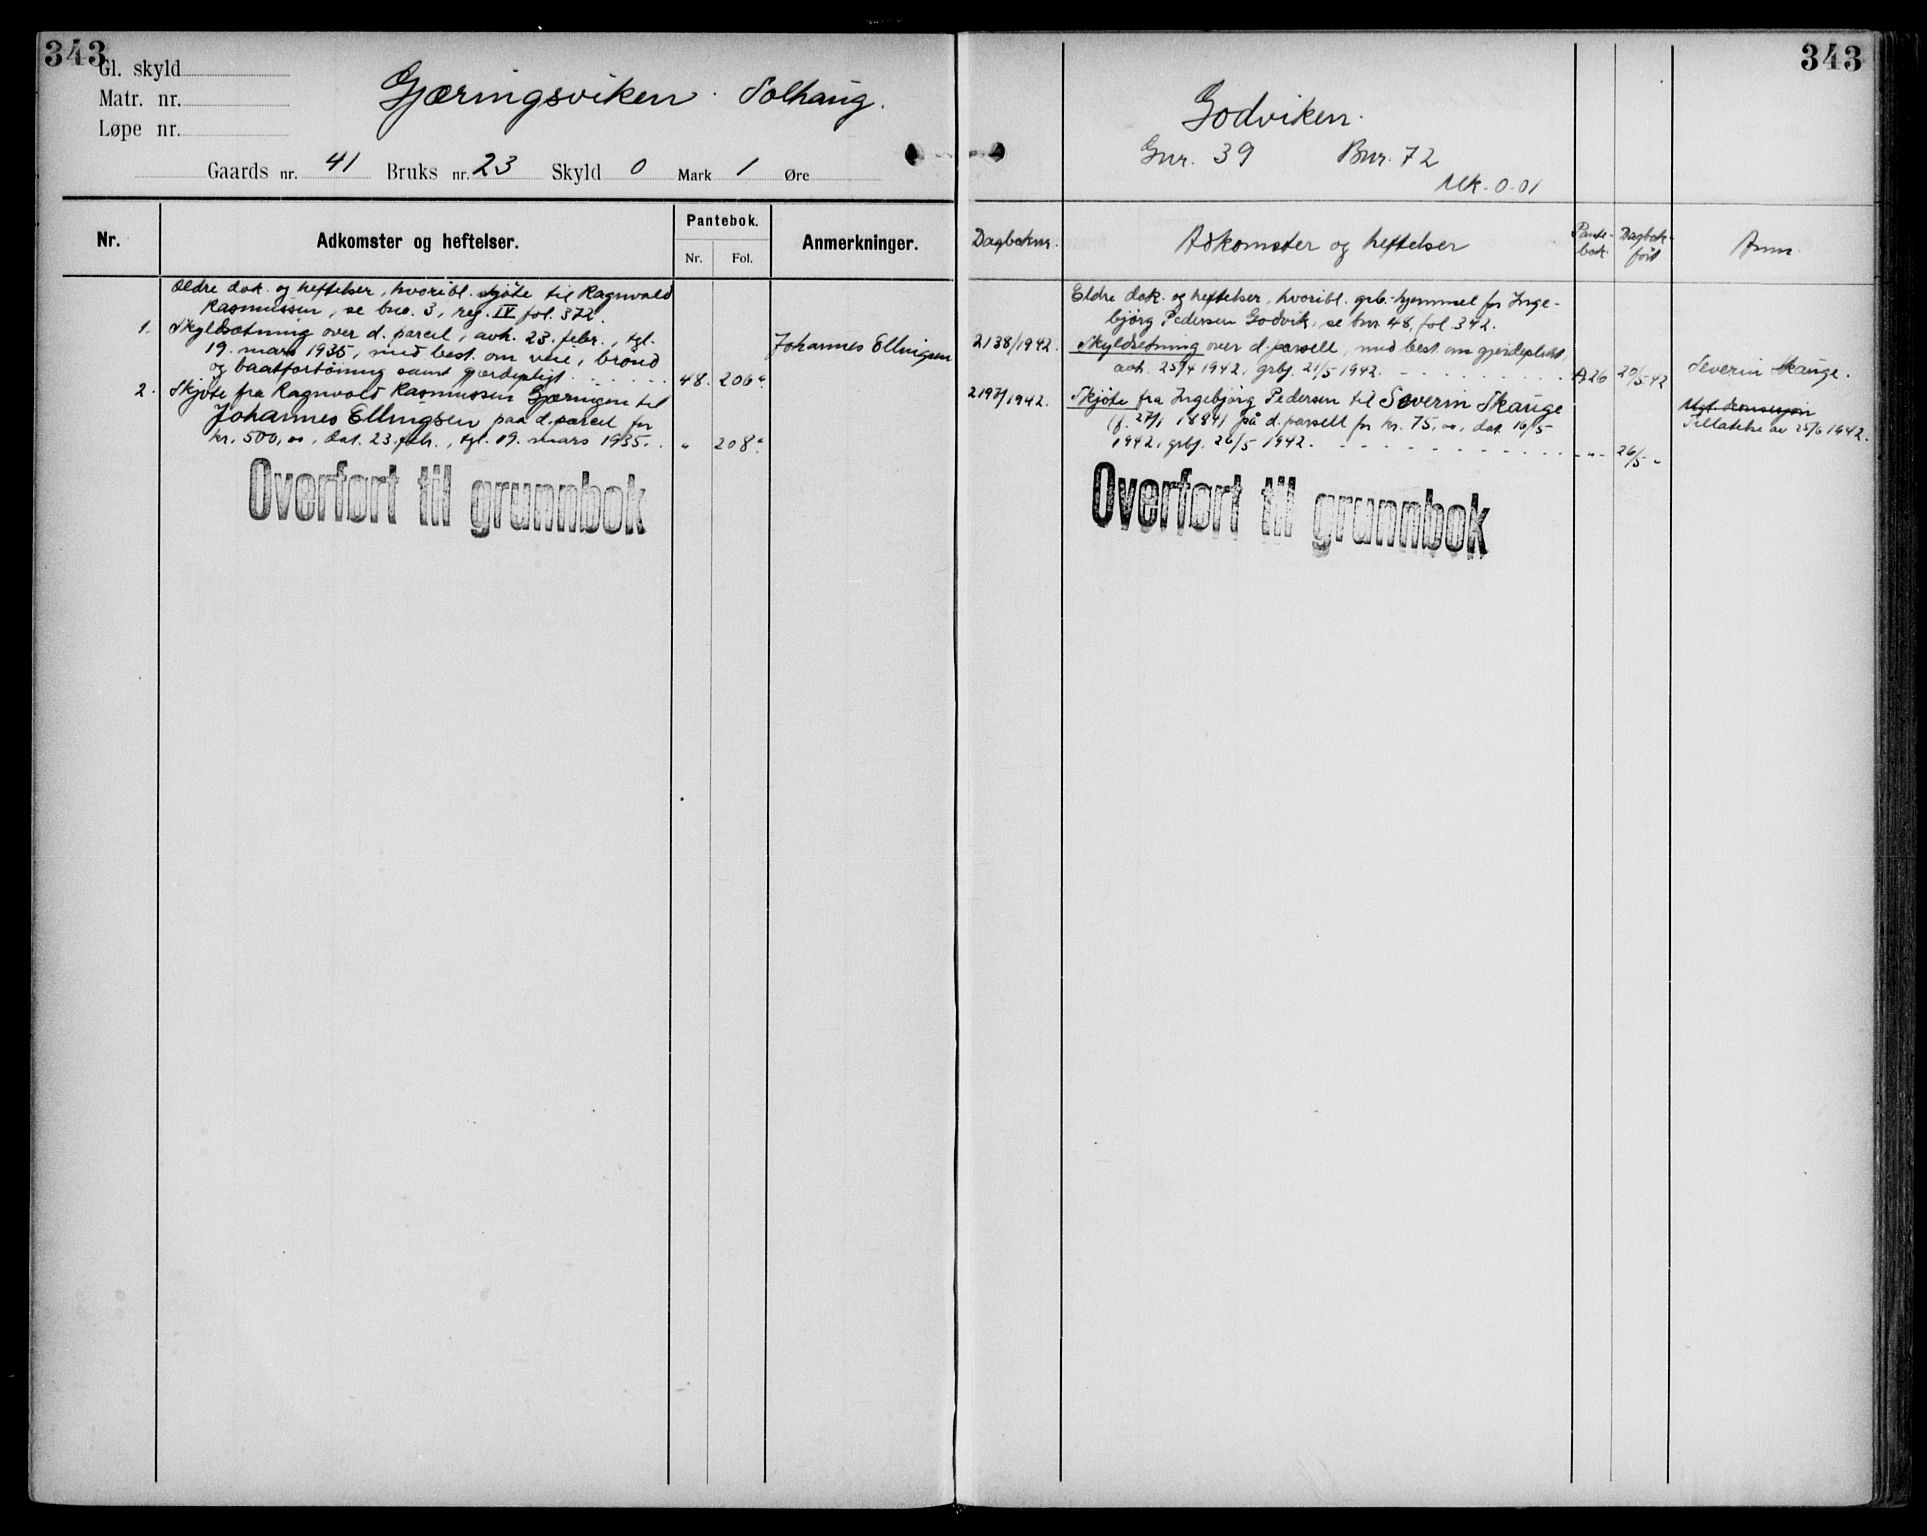 343
Gl. skyld
Matr. nr.
Løpe nr.
Gjæringsviken. Solhaug.
Gaards nr. 41 Bruks nr. 23 Skyld 0 Mark 1 Øre
Nr.
Adkomster og heftelser.
Pantebok.
Nr. Fol.
Anmerkninger.
Ældre dok. og heftelser, hvoribl. skjöte til Ragnvald
Rasmussen, se bno. 3, reg. IV fol. 372.
1. Skyldsætning over d. parcel, avh. 23. febr., tgl.
19. mars 1935, med best. om veie, brönd
og baatfortöining samt gjærdepligt. 48. 206a.
Johannes Ellingsen
2. Skjöte fra Ragnvald Rasmussen Gjæringen til
Johannes Ellingsen paa d. parcel for
kr. 500,00, dat. 23. febr., tgl. 19. mars 1935. " 208a.
Overført til grunnbok
343
Godviken.
Gnr. 39 Bnr. 72
Mk. 0.01
Dagboknr.
Adkomster og heftelser
Pante-
bok.
Dagbok-
ført
Anm.
Eldre dok. og heftelser, hvoribl. grb.-hjemmel for Inge-
björg Pedersen Godvik, se bnr. 48, fol. 342.
2138/1942. Skyldsetning over d. parsell, med best. om gjerdeplikt,
avh. 25/4 1942, grbf. 21/5 1942. A26 20/5-42
Severin Skauge.
2197/1942. Skjöte fra Ingebjörg Pedersen til Severin Skauge
(f. 27/1 1884) på d. parsell for kr. 75,00, dat. 16/5
1942, grbf. 26/5 1942. - " - 26/5 "
Mgl. konsesjon
Tillatelse av 25/6 1942.
Overført til grunnbok